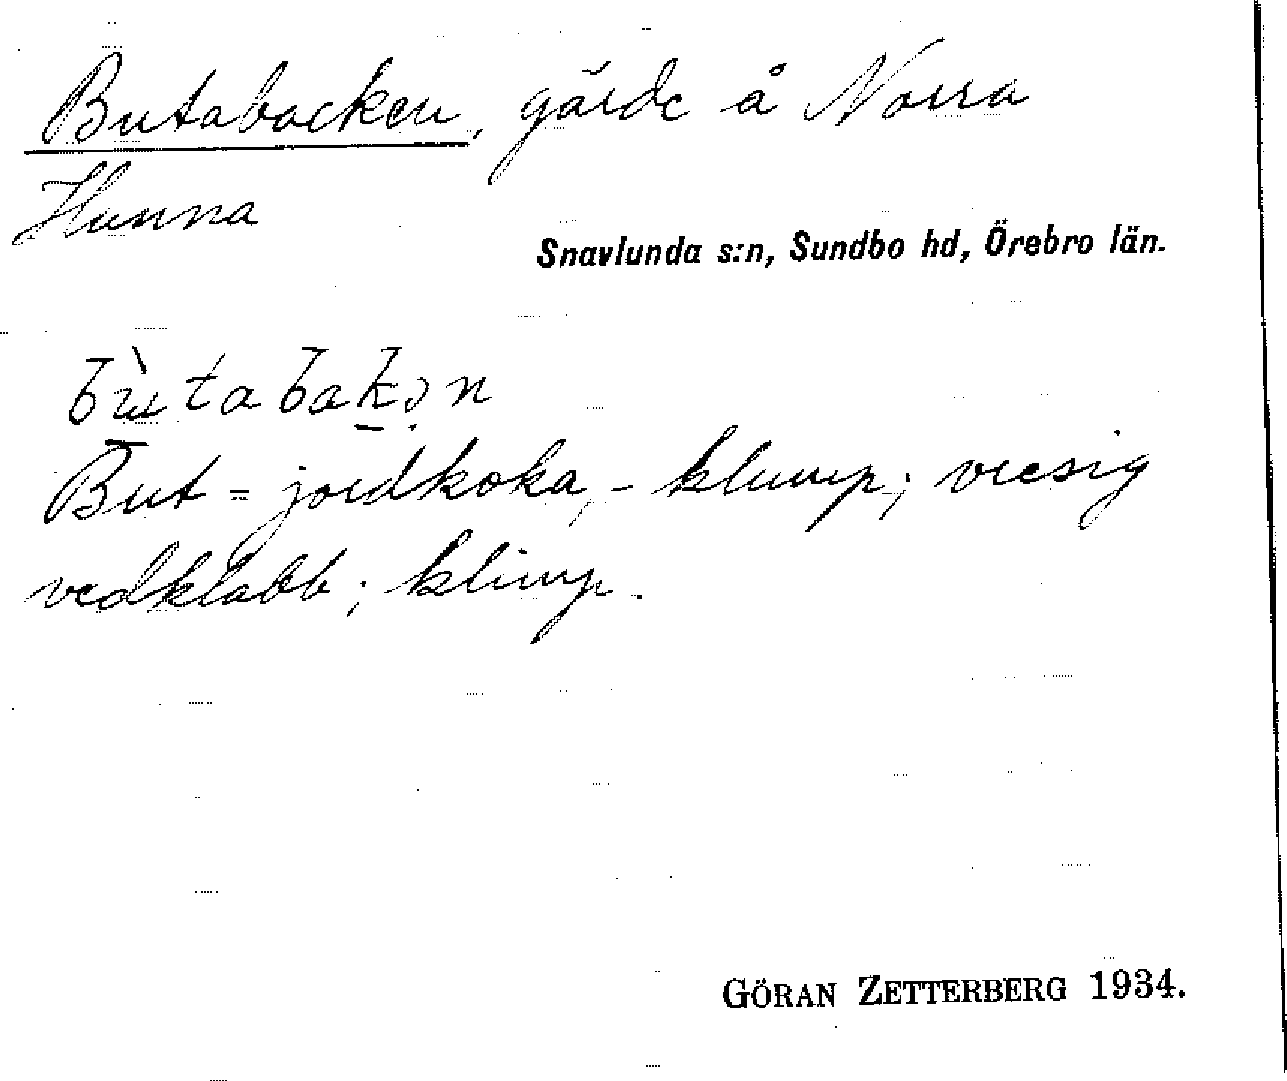 Butabacken, gärde å Norra
Hunna
Snavlunda s:n, Sundbo hd, Örebro län.
But = jordkoka, - klump; vresig
vedklabb; klimp.
GÖRAN ZETTERBERG 1934.